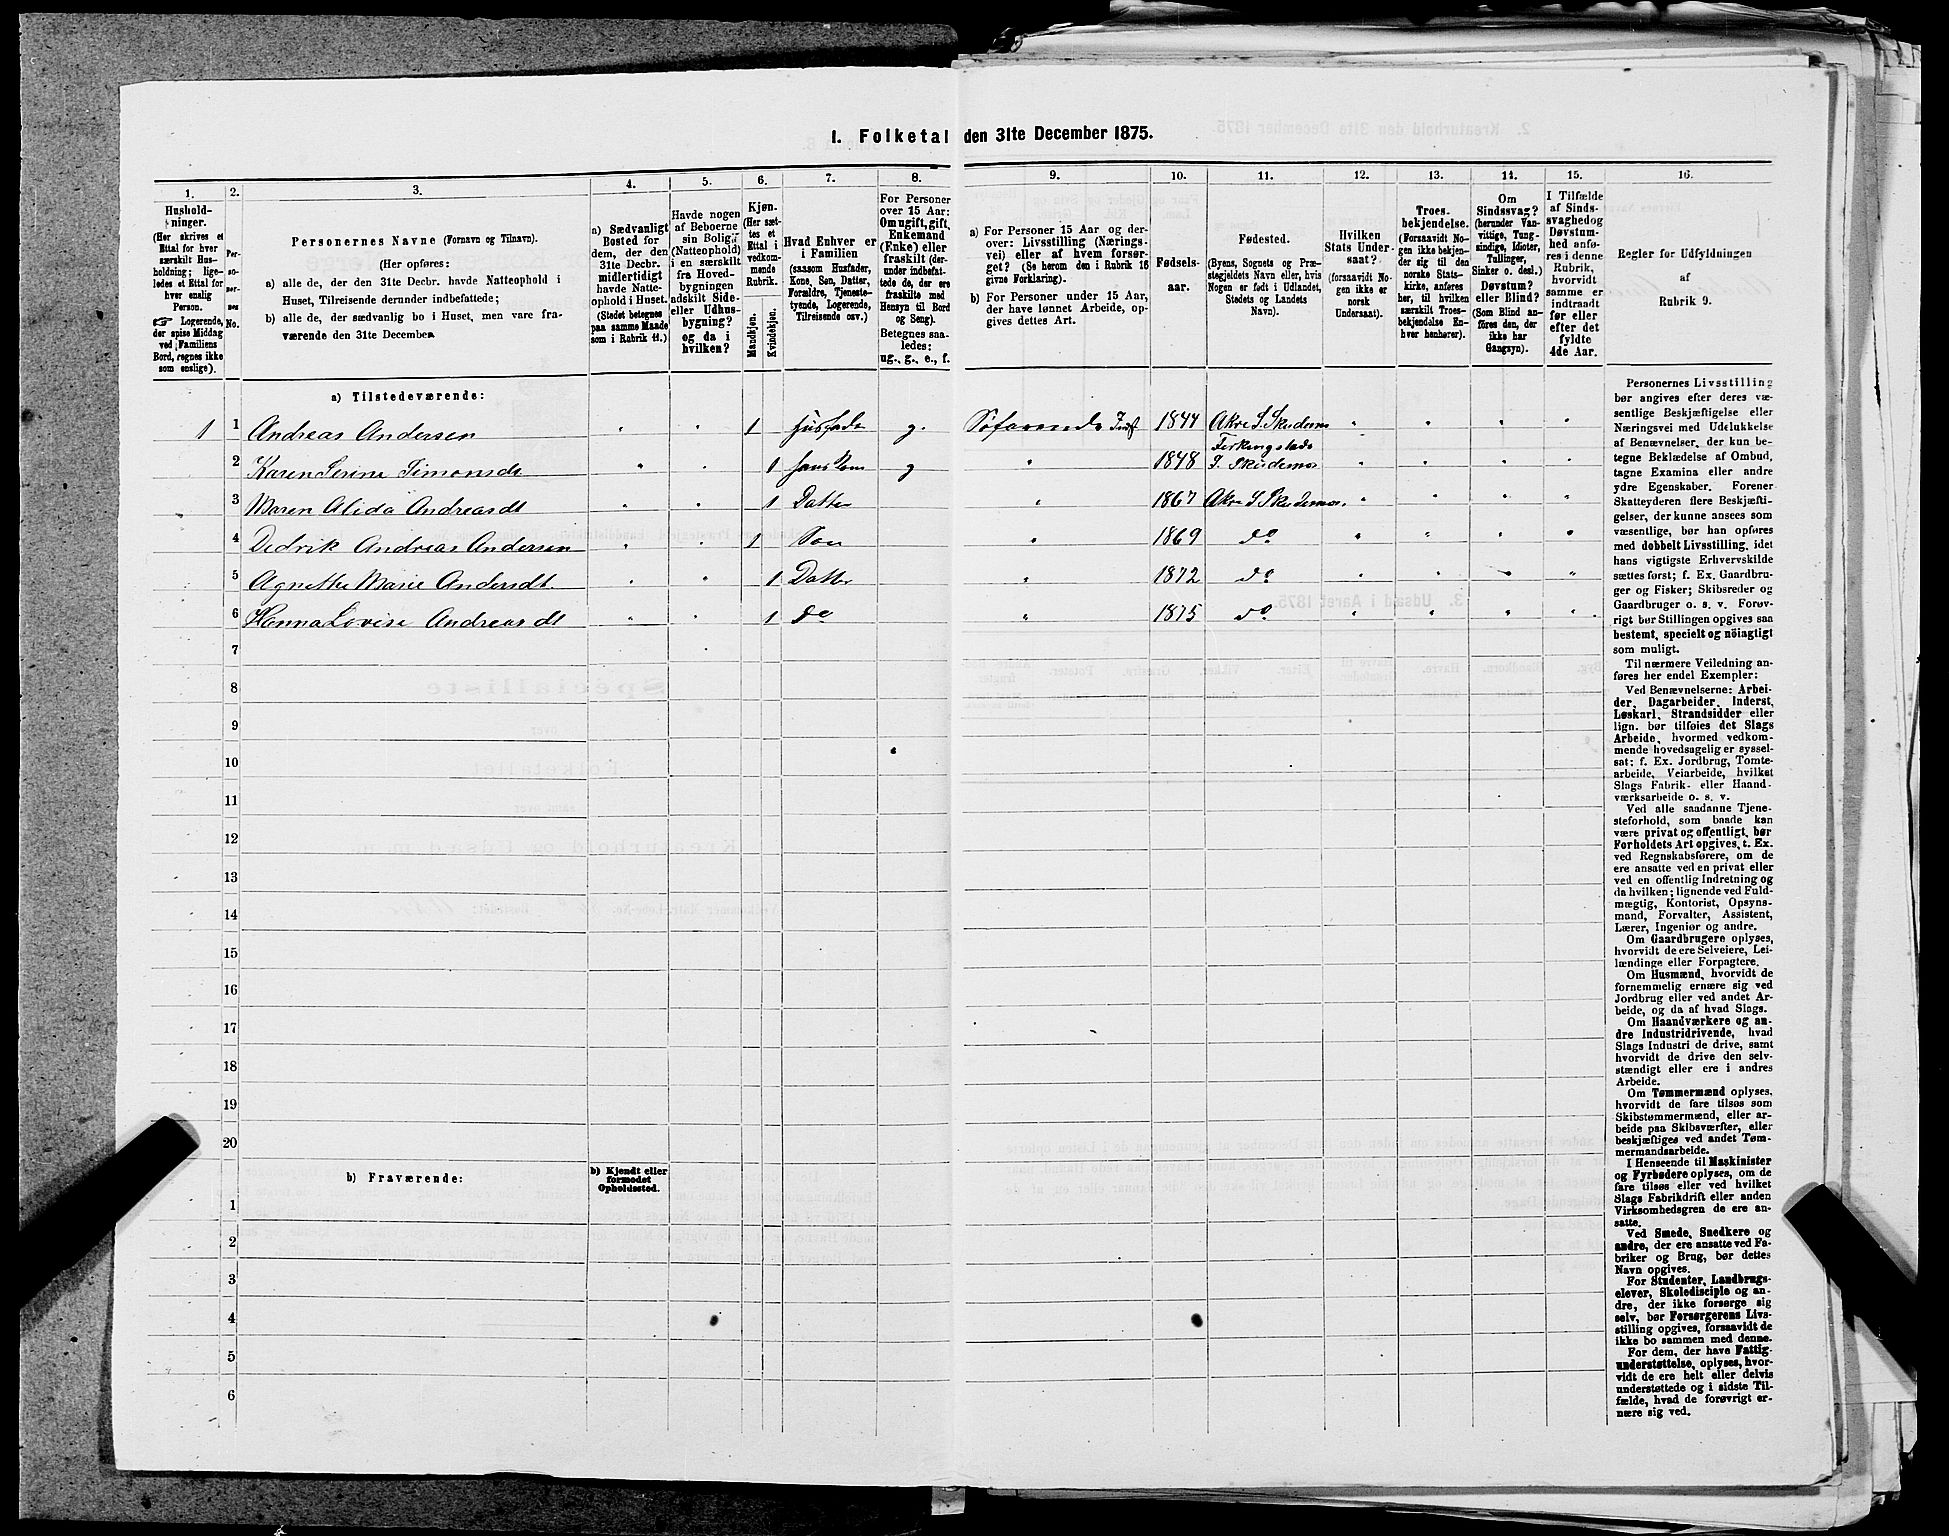 1. Folketal den 31te December 1875.
1.
Hushold-
ninger.
(Her skrives et
Ettal for hver
særskilt Hus-
holdning; lige-
ledes et Ettal for
hver enslig
Person.
☞ Logerende,
der spise Middag
ved Familiens
Bord, regnes ikke
som enslige).
2.
Per-
so-
ner-
nes
No.
3.
Personernes Navne (Fornavn og Tilnavn).
(Her opføres:
a) alle de, der den 31te Decbr. havde Natteophold i
Huset, Tilreisende derunder indbefattede;
b) alle de, der sædvanlig bo i Huset, men vare fra-
værende den 31te December.
4.
a) Sædvanligt
Bosted for
dem, der den
31te Decbr.
midlertidigt
havde Natte-
ophold i Huset.
(Stedet betegnes
paa samme Maade
som i Rubrik 11.)
5.
Havde nogen
af Beboerne
sin Bolig
(Natteophold)
i en særskilt
fra Hoved-
bygningen
adskilt Side-
eller Udhus-
bygning?
og da i
hvilken?
6.
Kjøn.
(Her sæt-
tes et
Ettal i
vedkom-
mende
Rubrik.
Mandkjøn.
Kvindekjøn.
7.
Hvad Enhver er
i Familien
(saasom Husfader,
Kone, Søn, Datter,
Forældre, Tjeneste-
tyende, Logerende,
Tilreisende osv.)
8.
For Personer
over 15 Aar:
Om ugift, gift,
Enkemand
(Enke) eller
fraskilt (der-
under indbefat-
tede de, der ere
fraskilte med
Hensyn til Bord
og Seng).
Betegnes saa-
ledes:
ug., g., e., f.
9.
a) For Personer 15 Aar og der-
over: Livsstilling (Nærings-
vei) eller af hvem forsør-
get? (Se herom den i Rubrik 16
givne Forklaring).
b) For Personer under 15 Aar,
der have lønnet Arbeide, op-
gives dettes Art.
10.
Fødsels-
aar.
11.
Fødested.
(Byens, Sognets og Præ-
stegjeldets Navn eller, hvis
Nogen er født i Udlandet,
Stedets og Landets
Navn).
12.
Hvilken
Stats Under-
saat?
(forsaavidt No-
gen ikke er
norsk
Undersaat).
13.
Troes-
bekjendelse.
(Forsaavidt No-
gen ikke bekjen-
der sig til den
norske Stats-
kirke, anføres
her, til hvilken
særskilt Troes-
bekjendelse En-
hver henhører).
14.
Om
Sindssvag?
(herunder Van-
vittige, Tung-
sindige, Idioter,
Tullinger,
Sinker o. desl.)
Døvstum?
eller Blind?
(Som Blind an-
føres den, der
ikke har
Gangsyn).
15.
I Tilfælde
af Sinds-
svaghed og
Døvstum-
hed anfø-
res i denne
Rubrik,
hvorvidt
samme er
indtraadt
før eller
efter det
fyldte
4de Aar.
16.
Regler for Udfyldningen
af
Rubrik 9.
a) Tilstedeværende:
1 1 Andreas Andersen " " 1 Husfade g. Søfarende 1844 Akre S. Skudenes " " " "
2 Karen Serine Simonsdt " " 1 g " 1848 Ferkingstade S. Skudenes " " " "
3 Maren Alida Andreasdt " " 1 Datter " 1867 Akre S Skudenes. " " " "
4 Dedrik Andreas Andersen " " 1 Søn " 1869 do " " " "
5 Agnethe Marie Andersdt. " " 1 Datter " 1872 do " " " "
6 Hanna Lovise Andreasdt " " 1 do " 1875 do " " " "
7
8
9
10
11
12
13
14
15
16
17
18
19
20
b) Fraværende:
b) Kjendt eller
formodet
Opholdssted.
1
2
3
4
5
6
Personernes Livsstilling
bør angives efter deres væ-
sentlige Beskjæftigelse eller
Næringsvei med Udelukkelse
af Benævnelser, der kun be-
tegne Beklædelse af Ombud,
tagne Examina eller andre
ydre Egenskaber. Forener
Skatteyderen flere Beskjæfti-
gelser, der kunne ansees som
væsentlige, bør han opføres
med dobbelt Livsstilling, idet
hans vigtigste Erhvervskilde
sættes først; f. Ex. Gaardbru-
ger og Fisker; Skibsreder og
Gaardbruger o. s. v. Forøv-
rigt bør Stillingen opgives saa
bestemt, specielt og nøiagtigt
som muligt.
Til nærmere Veiledning an-
føres her endel Exempler:
Ved Benævnelserne: Arbei-
der, Dagarbeider, Inderst,
Løskarl, Strandsidder eller
lign. bør tilføies det Slags
Arbeide, hvormed vedkom-
mende hovedsagelig er syssel-
sat; f. Ex. Jordbrug, Tomte-
arbeide, Veiarbeide, hvilket
Slags Fabrik- eller Haand-
værksarbeide o. s. v.
Ved alle saadanne Tjene-
steforhold, som baade kan
være privat og offentligt, bør
Forholdets Art opgives, t. Ex.
ved Regnskabsførere, om de
ere ansatte ved en privat eller
ved en offentlig Indretning og
da hvilken; lignende ved Fuld-
mægtig, Kontorist, Opsyns-
mand, Forvalter, Assistent,
Lærer, Ingeniør og andre.
Om Gaardbrugere oplyses,
hvorvidt de ere Selveiere, Lei-
lændinge eller Forpagtere.
Om Husmænd, hvorvidt de
fornemmelig ernære sig ved
Jordbrug eller ved andet Ar-
beide, og da af hvad Slags.
Om Haandværkere og an-
dre Industridrivende, hvad
Slags Industri de drive, samt
hvorvidt de drive den selv-
stændigt eller ere i andres
Arbeide.
Om Tømmermænd oplyses,
hvorvidt de fare tilsøs som
Skibstømmermænd, eller ar-
beide paa Skibsværfter, eller
beskjæftiges ved andet Tøm-
mermandsarbeide.
I Henseende til Maskinister
og Fyrbødere oplyses, om de
fare tilsøs eller ved hvilket
Slags Fabrikdrift eller anden
Virksomhedsgren de ere an-
satte.
Ved Smede, Snedkere og
andre, der ere ansatte ved Fa-
briker og Brug, bør dettes
Navn opgives.
For Studenter, Landbrugs-
elever, Skoledisciple og an-
dre, der ikke forsørge sig
selv, bør Forsørgerens Livs-
stilling opgives, forsaavidt de
ikke bo sammen med denne.
For dem, der have Fattig-
understøttelse, oplyses, hvor-
vidt de ere helt eller delvis
understøttede og i sidste Til-
fælde, hvad de forøvrigt er-
nære sig ved.